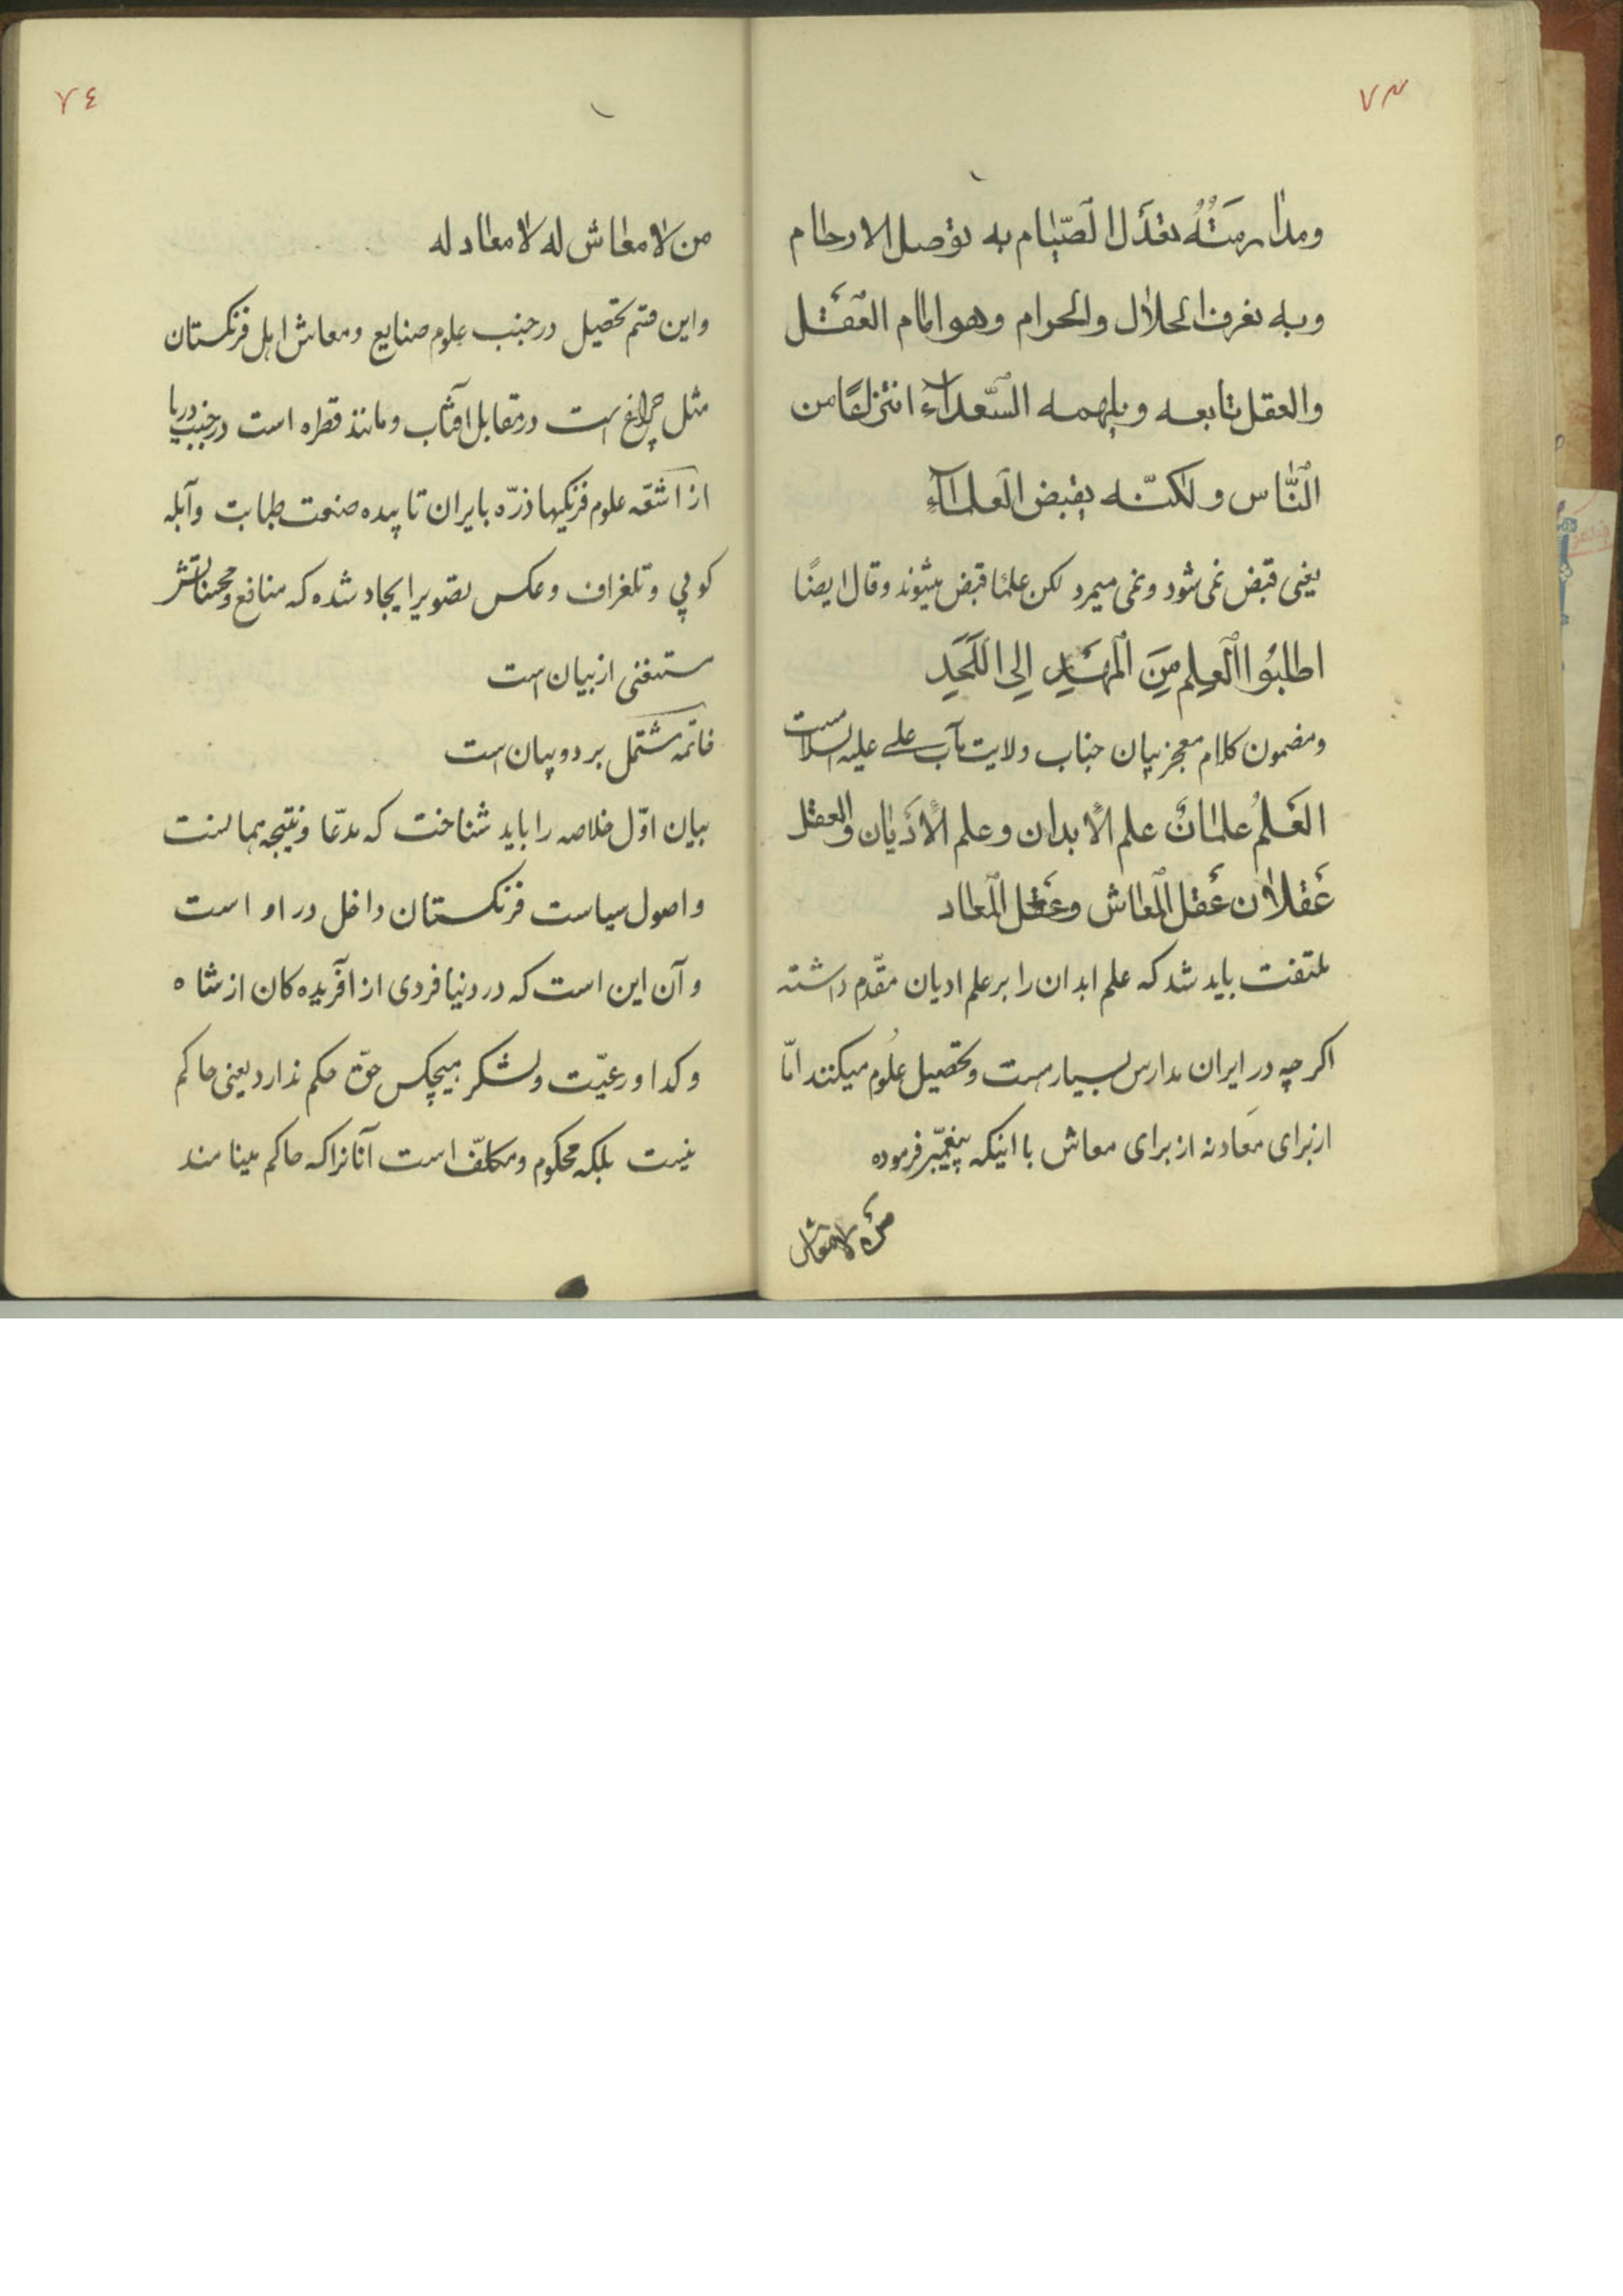 ٧٣
ومدارسته تعدل الصيام به توصل الارحام
وبه تعرف الحلال والحرام وهو امام العقل
والعقل تابعه ويلهمه السعداء انتزاعا من
الناس ولكنه يقبض العلماء
یعنی قبض نمی شود و نمی میرد لکن علما قبض میشوند وقال ایضًا
اطلبوا العلم من المهد الى اللحد
ومضمون کلام معجز بیان جناب ولایت مآب علی علیه السلام است
العلم علمان علم الأبدان وعلم الأديان والعقل
عقلان عقل المعاش وعقل المعاد
ملتفت باید شد که علم ابدان را بر علم ادیان مقدّم داشته
اکر چه در ایران مدارس بسیار هست و تحصیل علوم میکنند امّا
از برای معاد نه از برای معاش با اینکه پیغمبر فرموده
من لا معاش
٧٤
من لا معاش له لا معاد له
واین قسم تحصیل در جنب علوم صنایع ومعاش اهل فرنکستان
مثل چراغ است در مقابل آفتاب و مانند قطره است در جنب دریا
از اشعّه علوم فرنکیها ذرّه بایران تابیده صنعت طبابت وآبله
کوپی و تلغراف و عکس تصویر ایجاد شده که منافع ومحسناتش
مستغنی از بیان است
خاتمه مشتمل بر دو بیان است
بیان اوّل خلاصه را باید شناخت که مدّعا ونتیجه همانست
واصول سیاست فرنکستان داخل در او است
و آن این است که در دنیا فردی از آفریده کان از شاه
و کدا و رعیّت و لشکر هیچکس حقّ حکم ندارد یعنی حاکم
نیست بلکه محکوم و مکلّف است آنانرا که حاکم مینامند